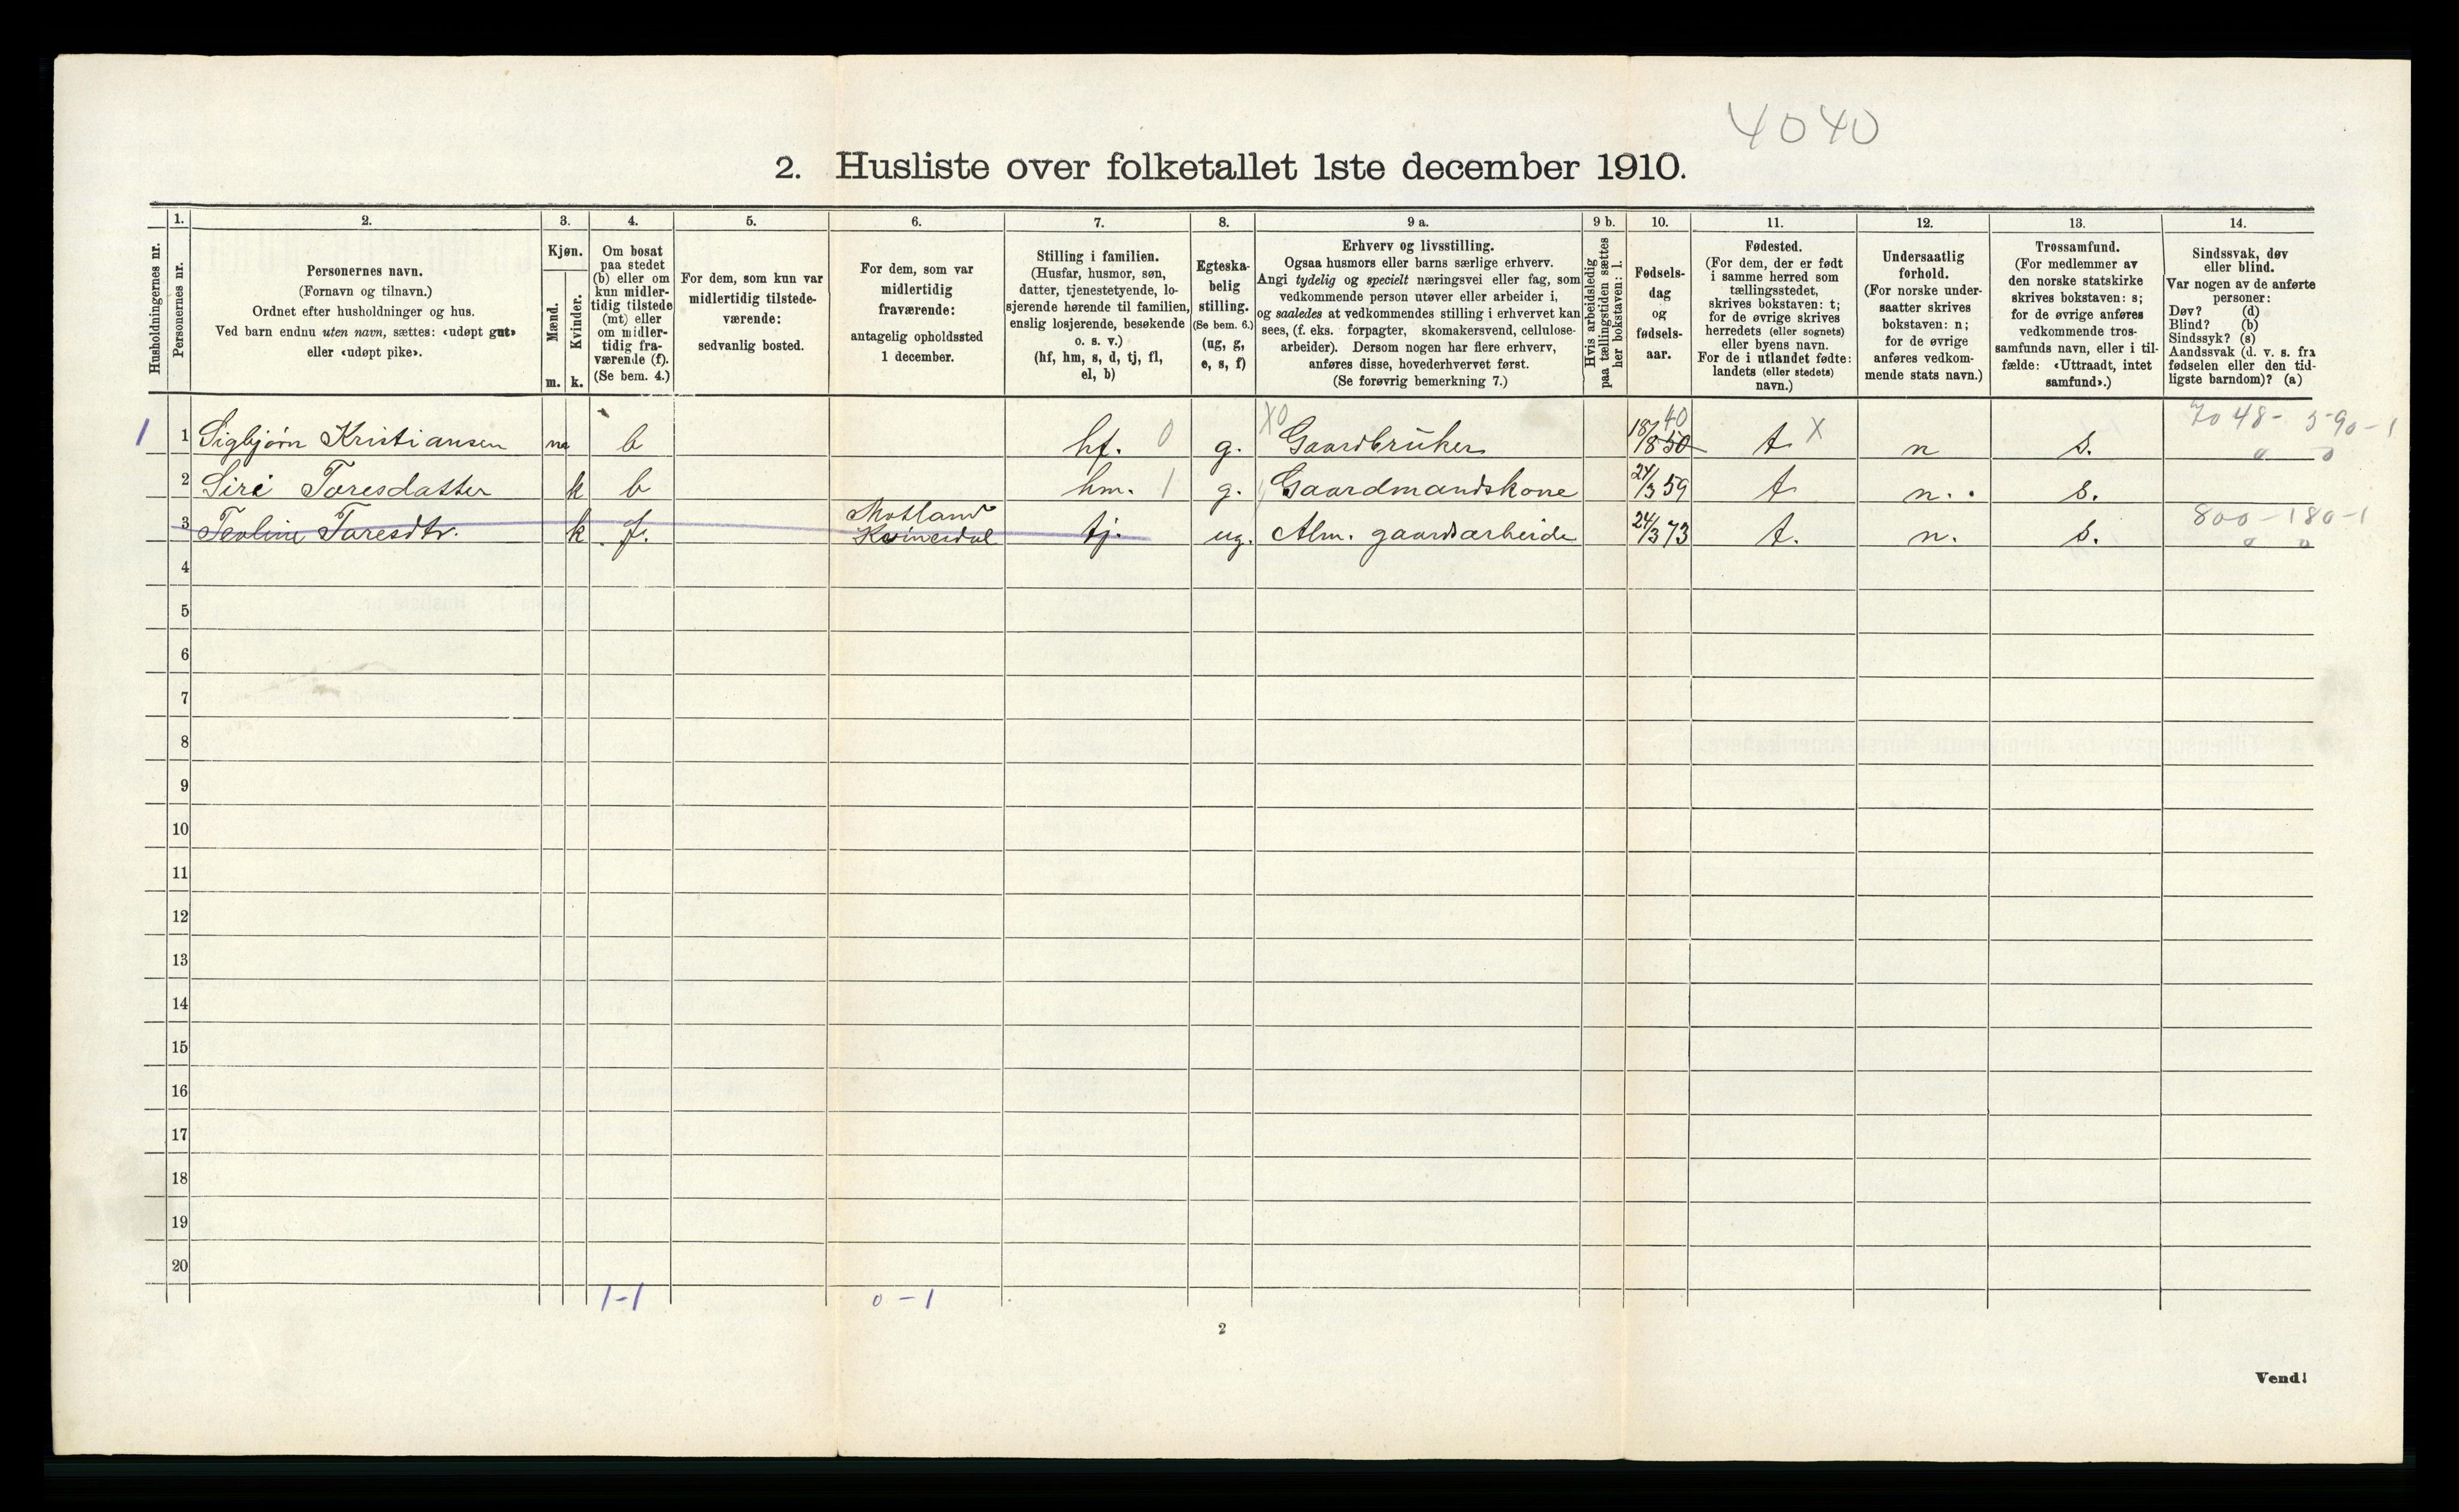 4040
2. Husliste over folketallet 1ste december 1910.
Husholdningernes nr.
1.
Personernes nr.
2.
Personernes navn.
(Fornavn og tilnavn.)
Ordnet efter husholdninger og hus.
Ved barn endnu uten navn, sættes: «udøpt gut»
eller «udøpt pike».
3.
Kjøn.
Mænd.
Kvinder.
m. k.
4.
Om bosat
paa stedet
(b) eller om
kun midler-
tidig tilstede
(mt) eller
om midler-
tidig fra-
værende (f).
(Se bem. 4.)
5.
For dem, som kun var
midlertidig tilstede-
værende:
sedvanlig bosted.
6.
For dem, som var
midlertidig
fraværende:
antagelig opholdssted
1 december.
7.
Stilling i familien.
(Husfar, husmor, søn,
datter, tjenestetyende, lo-
sjerende hørende til familien,
enslig losjerende, besøkende
o. s. v.)
(hf, hm, s, d, tj, fl,
el, b)
8.
Egteska-
belig
stilling.
(Se bem. 6.)
(ug, g,
e, s, f)
9 a.
Erhverv og livsstilling.
Ogsaa husmors eller barns særlige erhverv.
Angi tydelig og specielt næringsvei eller fag, som
vedkommende person utøver eller arbeider i,
og saaledes at vedkommendes stilling i erhvervet kan
sees, (f. eks. forpagter, skomakersvend, cellulose-
arbeider). Dersom nogen har flere erhverv,
anføres disse, hovederhvervet først.
(Se forøvrig bemerkning 7.)
9 b.
Hvis arbeidsledig
paa tællingstiden sættes
her bokstaven: l.
10.
Fødsels-
dag
og
fødsels-
aar.
11.
Fødested.
(For dem, der er født
i samme herred som
tællingsstedet,
skrives bokstaven: t;
for de øvrige skrives
herredets (eller sognets)
eller byens navn.
For de i utlandet fødte:
landets (eller stedets)
navn.)
12.
Undersaatlig
forhold.
(For norske under-
saatter skrives
bokstaven: n;
for de øvrige
anføres vedkom-
mende stats navn.)
13.
Trossamfund.
(For medlemmer av
den norske statskirke
skrives bokstaven: s;
for de øvrige anføres
vedkommende tros-
samfunds navn, eller i til-
fælde: «Uttraadt, intet
samfund».)
14.
Sindssvak, døv
eller blind.
Var nogen av de anførte
personer:
Døv? (d)
Blind? (b)
Sindssyk? (s)
Aandssvak (d. v. s. fra
fødselen eller den tid-
ligste barndom)? (a)
7048- 590-1
1 1 Sigbjørn Kristiansen m b hf. 0 g. X0 Gaardbruker 18/8 50 40 t X n s. 0 0
2 Siri Toresdatter k b hm. 1 g. Gaardmandskone 24/3 59 t n. s.
800-180-1
3 Teoline Toresdtr. k f. Motland Kvinesdal tj. ug. Alm. gaardsarbeide 24/3 73 t. n. s. 0 0
4
5
6
7
8
9
10
11
12
13
14
15
16
17
18
19
20
1-1 0-1
2
Vend!